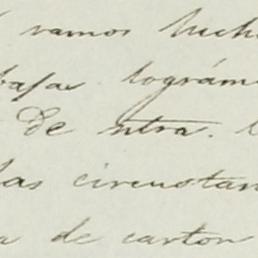 vamos luch
bajas lográm
De ntra.
las circunstan
a de carton